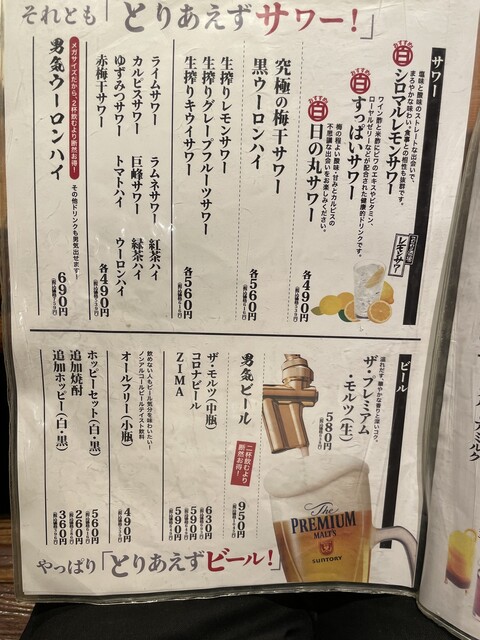 それとも「とりあえずサワー！」
サワー
塩味と酸味のストレートな出会いで、
まろやかな味わい。食事との相性も抜群です。
シロマルレモンサワー
ワイン酢と米酢にビワのエキスやビタミン、
ローヤルゼリーなどが配合された健康的ドリンクです。
すっぱいサワー
梅の程よい酸味・甘みとカルピスの
不思議な出会いをお楽しみください。
日の丸サワー
各490円
レモンサワー
究極の梅干サワー
黒ウーロンハイ
各560円
生搾りレモンサワー
生搾りグレープフルーツサワー
生搾りキウイサワー
各560円
ライムサワー
カルピスサワー
ゆずみつサワー
赤梅干サワー
ラムネサワー
巨峰サワー
トマトハイ
紅茶ハイ
緑茶ハイ
ウーロンハイ
各490円
男気ウーロンハイ
メガサイズだから、2杯飲むより断然お得！
その他ドリンクも男気出せます！
690円
ビール
溢れだす、華やかな香りと深いコク。
ザ・プレミアム
・モルツ（生）
580円
男気ビール
二杯飲むより
断然お得！
950円
ザ・モルツ（中瓶）
630円
コロナビール
590円
ZIMA
590円
飲めない人もビール気分を味わいたい！
ノンアルコールビールテイスト飲料
オールフリー（小瓶）
490円
ホッピーセット（白・黒）
560円
追加焼酎
260円
追加ホッピー（白・黒）
360円
The
PREMIUM
MALT'S
SUNTORY
やっぱり「とりあえずビール！」